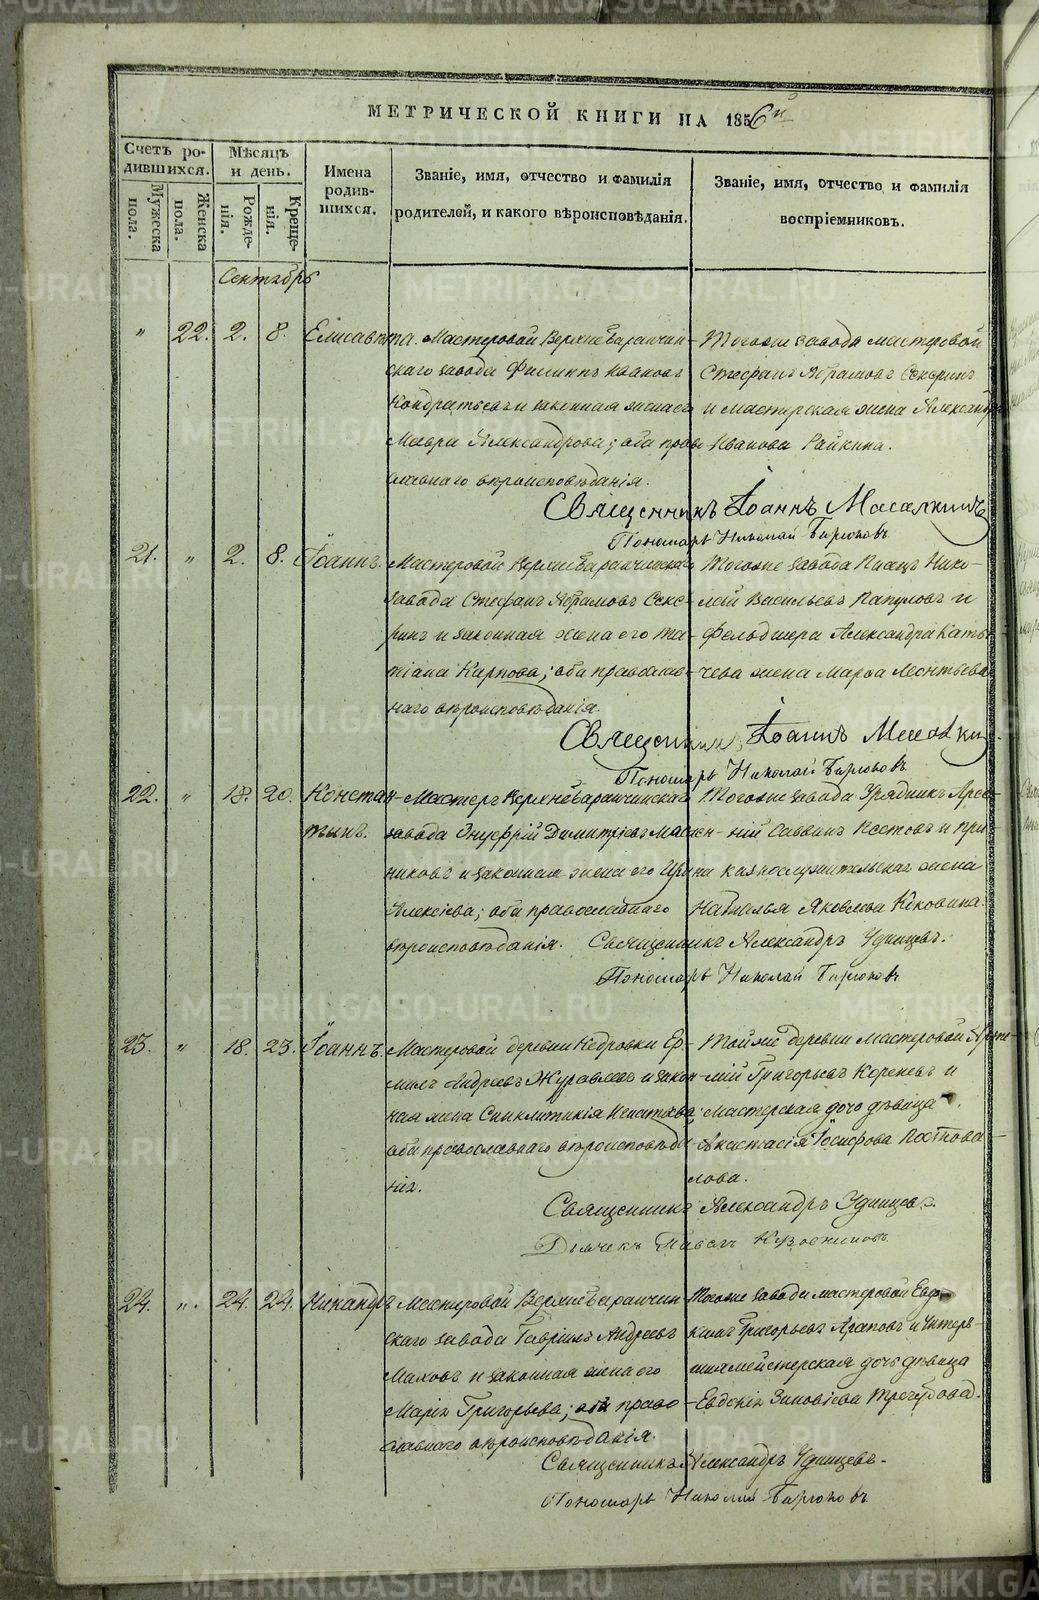 МЕТРИЧЕСКОЙ КНИГИ НА 1856й
Счетъ ро-
дившихся.
Мужеска
пола.
Женска
пола.
Мѣсяцъ
и день.
Рожде-
нія.
Креще-
нія.
Имена
родив-
шихся.
Званіе, имя, отчество и фамилія
родителей, и какого вѣроисповѣданія.
Званіе, имя, отчество и фамилія
воспріемниковъ.
Сентябрь
" 22. 2. 8. Елисавѣта.
Мастеровой Верхнебаранчин-
скаго завода Филиппъ Ивановъ
Кондратьевъ и законная жена его
Мавра Александрова; оба право-
славнаго вѣроисповѣданія.
Тогоже завода мастеровой
Стефанъ Абрамовъ Секеринъ
и мастерская жена Александра
Иванова Райкина.
Священникъ Іоаннъ
Пономарь Николай Бирюковъ
21. " 2. 8. Іоаннъ.
Мастеровой Верхнебаранчинскаго
завода Стефанъ Абрамовъ Секе-
ринъ и законная жена его Та-
тіана Карпова; оба православ-
наго вѣроисповѣданія.
Тогоже завода Писецъ Нико-
лай Васильевъ и
Фельдшера Александра
жена Марѳа Леонтьева
Священникъ Іоаннъ
Пономарь Николай Бирюковъ
22. " 18. 20. Констан-
тинъ.
Мастеръ Верхнебаранчинскаго
завода Онуфрій Димитріевъ Маслен-
никовъ и законная жена его Ирина
Алексѣева; оба православнаго
вѣроисповѣданія.
Тогоже завода Урядникъ Арсе-
ній Саввинъ и при-
кязнослужительская жена
Наталья Яковлева
Священникъ Александръ Удинцевъ.
Пономарь Николай Бирюковъ
23. " 18. 23. Іоаннъ.
Мастеровой деревни Кедровки Ер-
милъ Андреевъ Журавлевъ и закон-
ная жена Синклитикія
оба православнаго вѣроисповѣда-
нія.
Тойже деревни мастеровой Арте-
мій Григорьевъ Кореневъ и
мастерская дочь дѣвица
Анастасія Іосифова Постова-
лова.
Священникъ Александръ Удинцевъ.
Дьячекъ Павелъ
24. " 24. 24. Никандръ
Мастеровой Верхнебаранчин-
скаго завода Гавріилъ Андреевъ
Маховъ и законная жена его
Марія Григорьева; оба право-
славнаго вѣроисповѣданія.
Тогоже завода мастеровой Евдо-
кимъ Григорьевъ Араповъ и Унтеръ-
шихмейстерская дочь дѣвица
Евдокія Зиновіева
Священникъ Александръ Удинцевъ.
Пономарь Николай Бирюковъ
METRIKI.GASO-URAL.RU